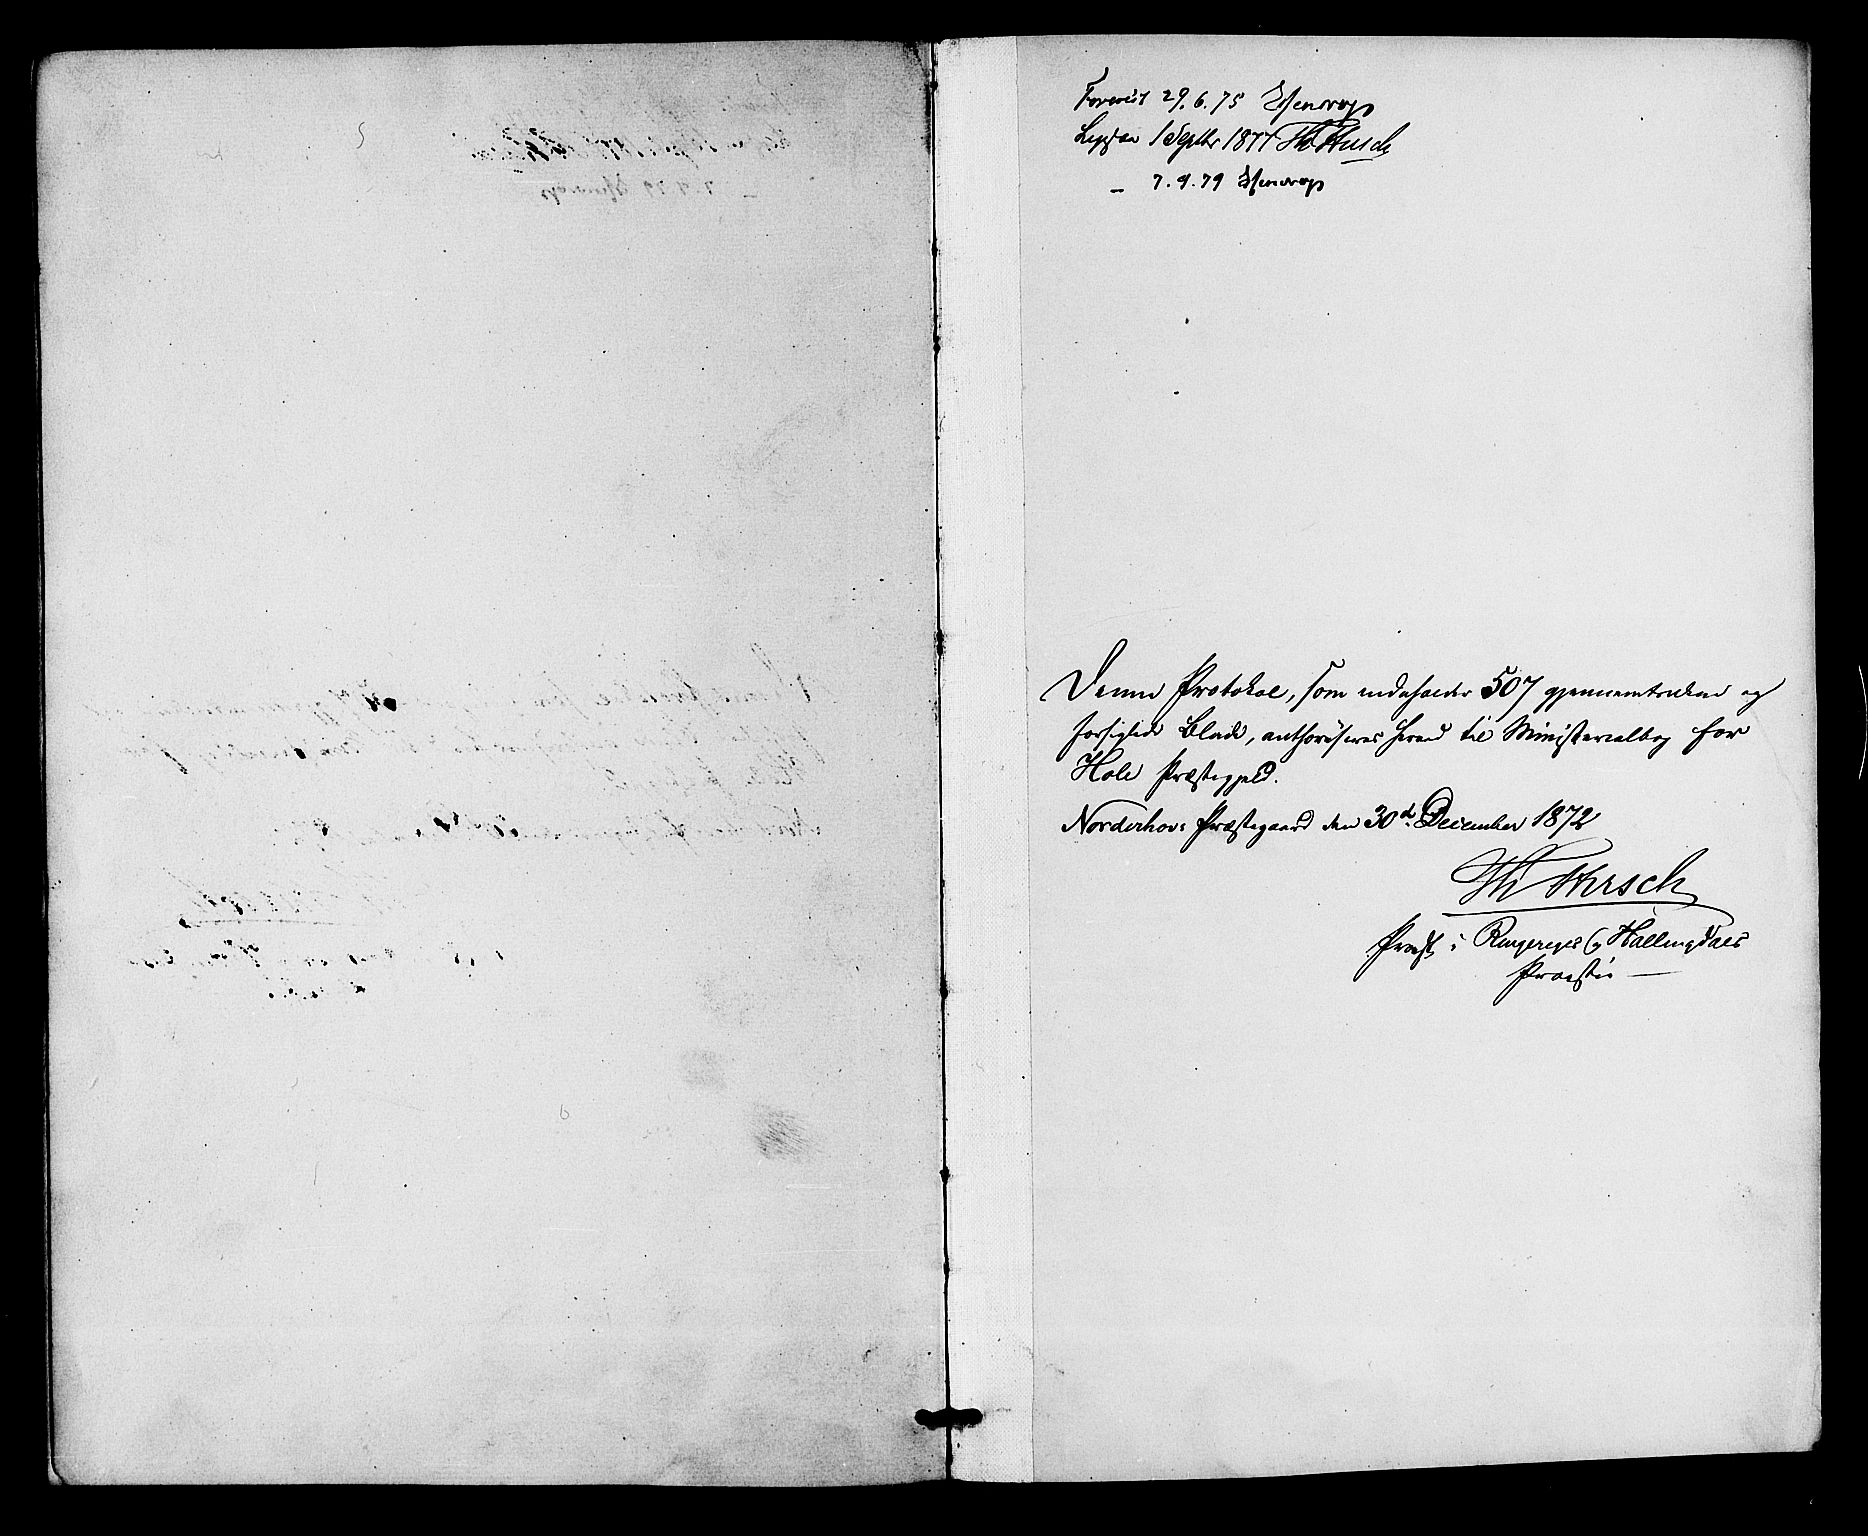 Forevist 29.6.75 Essendrop
Lagt 1 Septbr 1877 Th Kirsch
— 7.9.79 Essendrop
Denne Protokol, som indeholder 507 gjennemtrukne og
forsiglede Blade, authoriseres herved til Ministerialbog for
Hole Præstegjeld.
Norderhovs Præstegaard den 30d. December 1872
Th Kirsch
Provst i Ringeriges og Hallingdals
Provstie —